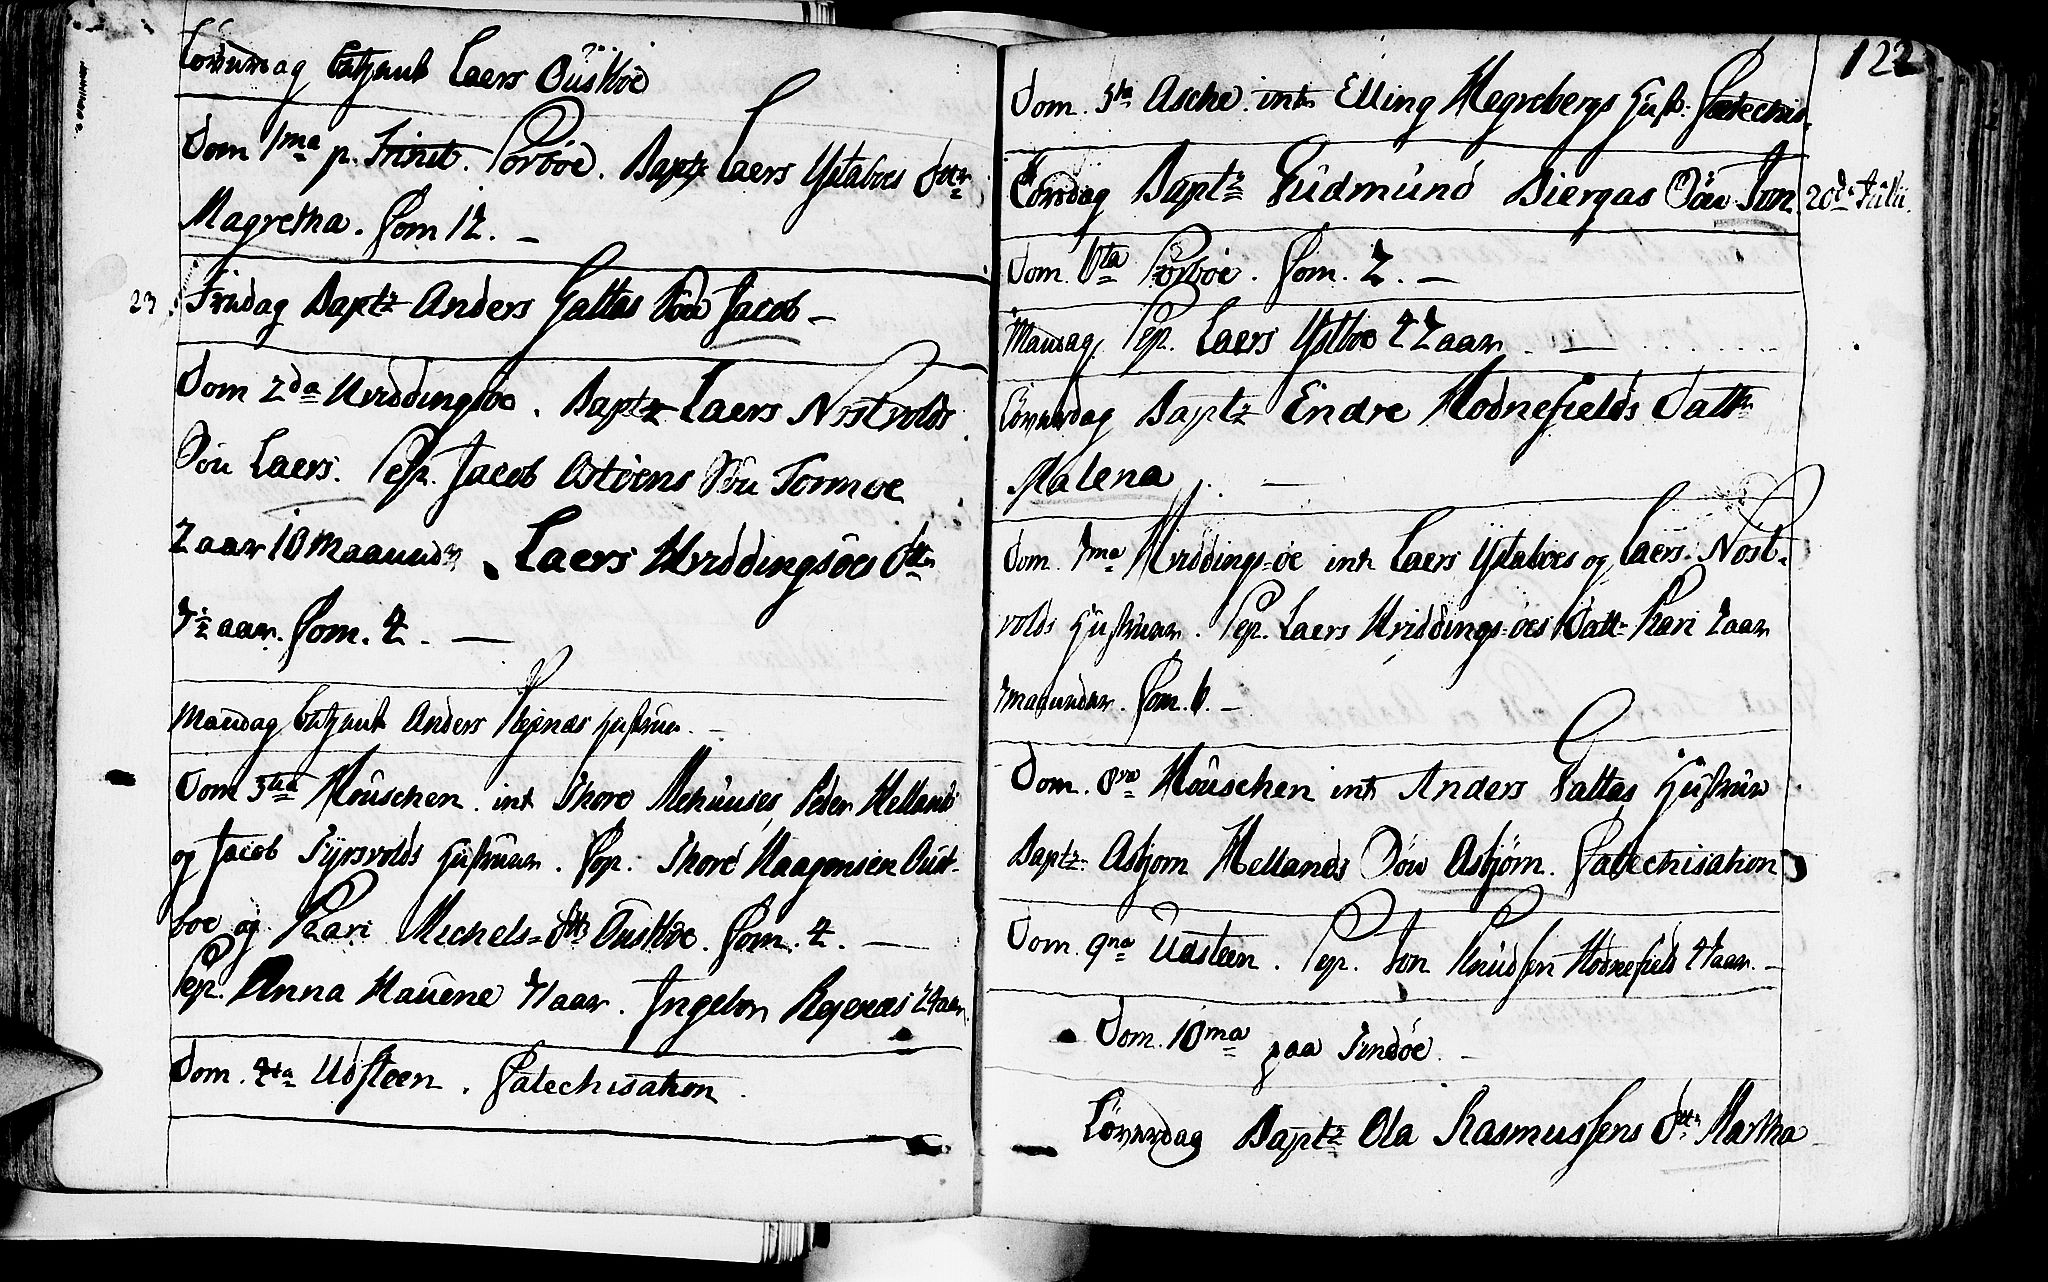 Löverdag Laers Ouskoe
Dom 1ma p. Trinit. Sörböe. Bapt. Laers Ystaböes dtr
Magretha. Com 12. –
23 Fridag Bapt. Anders Galtas Sön Jacob –
Dom 2da Hviddingsöe. Bapt. Laers Nostvolds
Sön Laers. Sep. Jacob Sön Tormoe
2 aar 10 Maaneder. Laers Hviddingsöes dtr
7½ aar. Com. 4. –
Mandag Anders Rejenæs Hustrue –
Dom 3tia Mouschen. int. Thore Mehuuses, Peder Hellands
og Jacob Hustruer. Cop. Thore Haagensen
boe og Kari Michels-dtr. Com. 4. –
Sep. Anna Hauene 71 aar. Ingebor Rejenæs 24 aar.
Dom. 4ta Udsteen. Catechisation.
122
Dom. 5ta Aschs. int. Elling Hegrebergs Hust: Catechis.
Torsdag Bapt. Gudmund Biergas Sön Jon. 20de Julii.
Dom. 6ta Sörböe. Com. 2. –
Mandag. Sep. Laers Ystboe 42 aar. –
Löverdag Bapt. Endre Hodnefields Datt.
Malena. –
Dom. 7ma Hviddings-öe int. Laers Ystaböes og Laers Nost-
volds Hustruer. Sep. Laers Hviddings-öes Datt. Kari 2 aar
7 maaneder. Com. 6. –
Dom. 8va Mouschen int. Anders Galtas Hustrue
Bapt. Asbjorn Hellands Sön Asbjörn. Catechisation
Dom. 9na Udsteen. Sep. Jon Knudsen Hodnefield 47 aar. –
Dom. 10ma paa Findöe. –
Löverdag Bapt. Ola Rasmussens dtr Martha